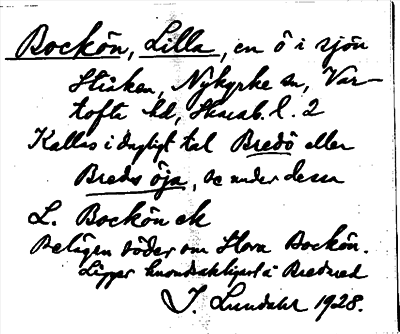 Bockön, Lilla, en ö i sjön
Stråken, Nykyrke sn, Var-
tofta hd, Skarab. l. 2
Kallas i dagligt tal Bredö eller
Breds öja, se under dessa
L. Bockön ek
Belägen söder om Stora Bockön.
Ligger huvudsakligast i Bredared
J. Lundahl 1928.